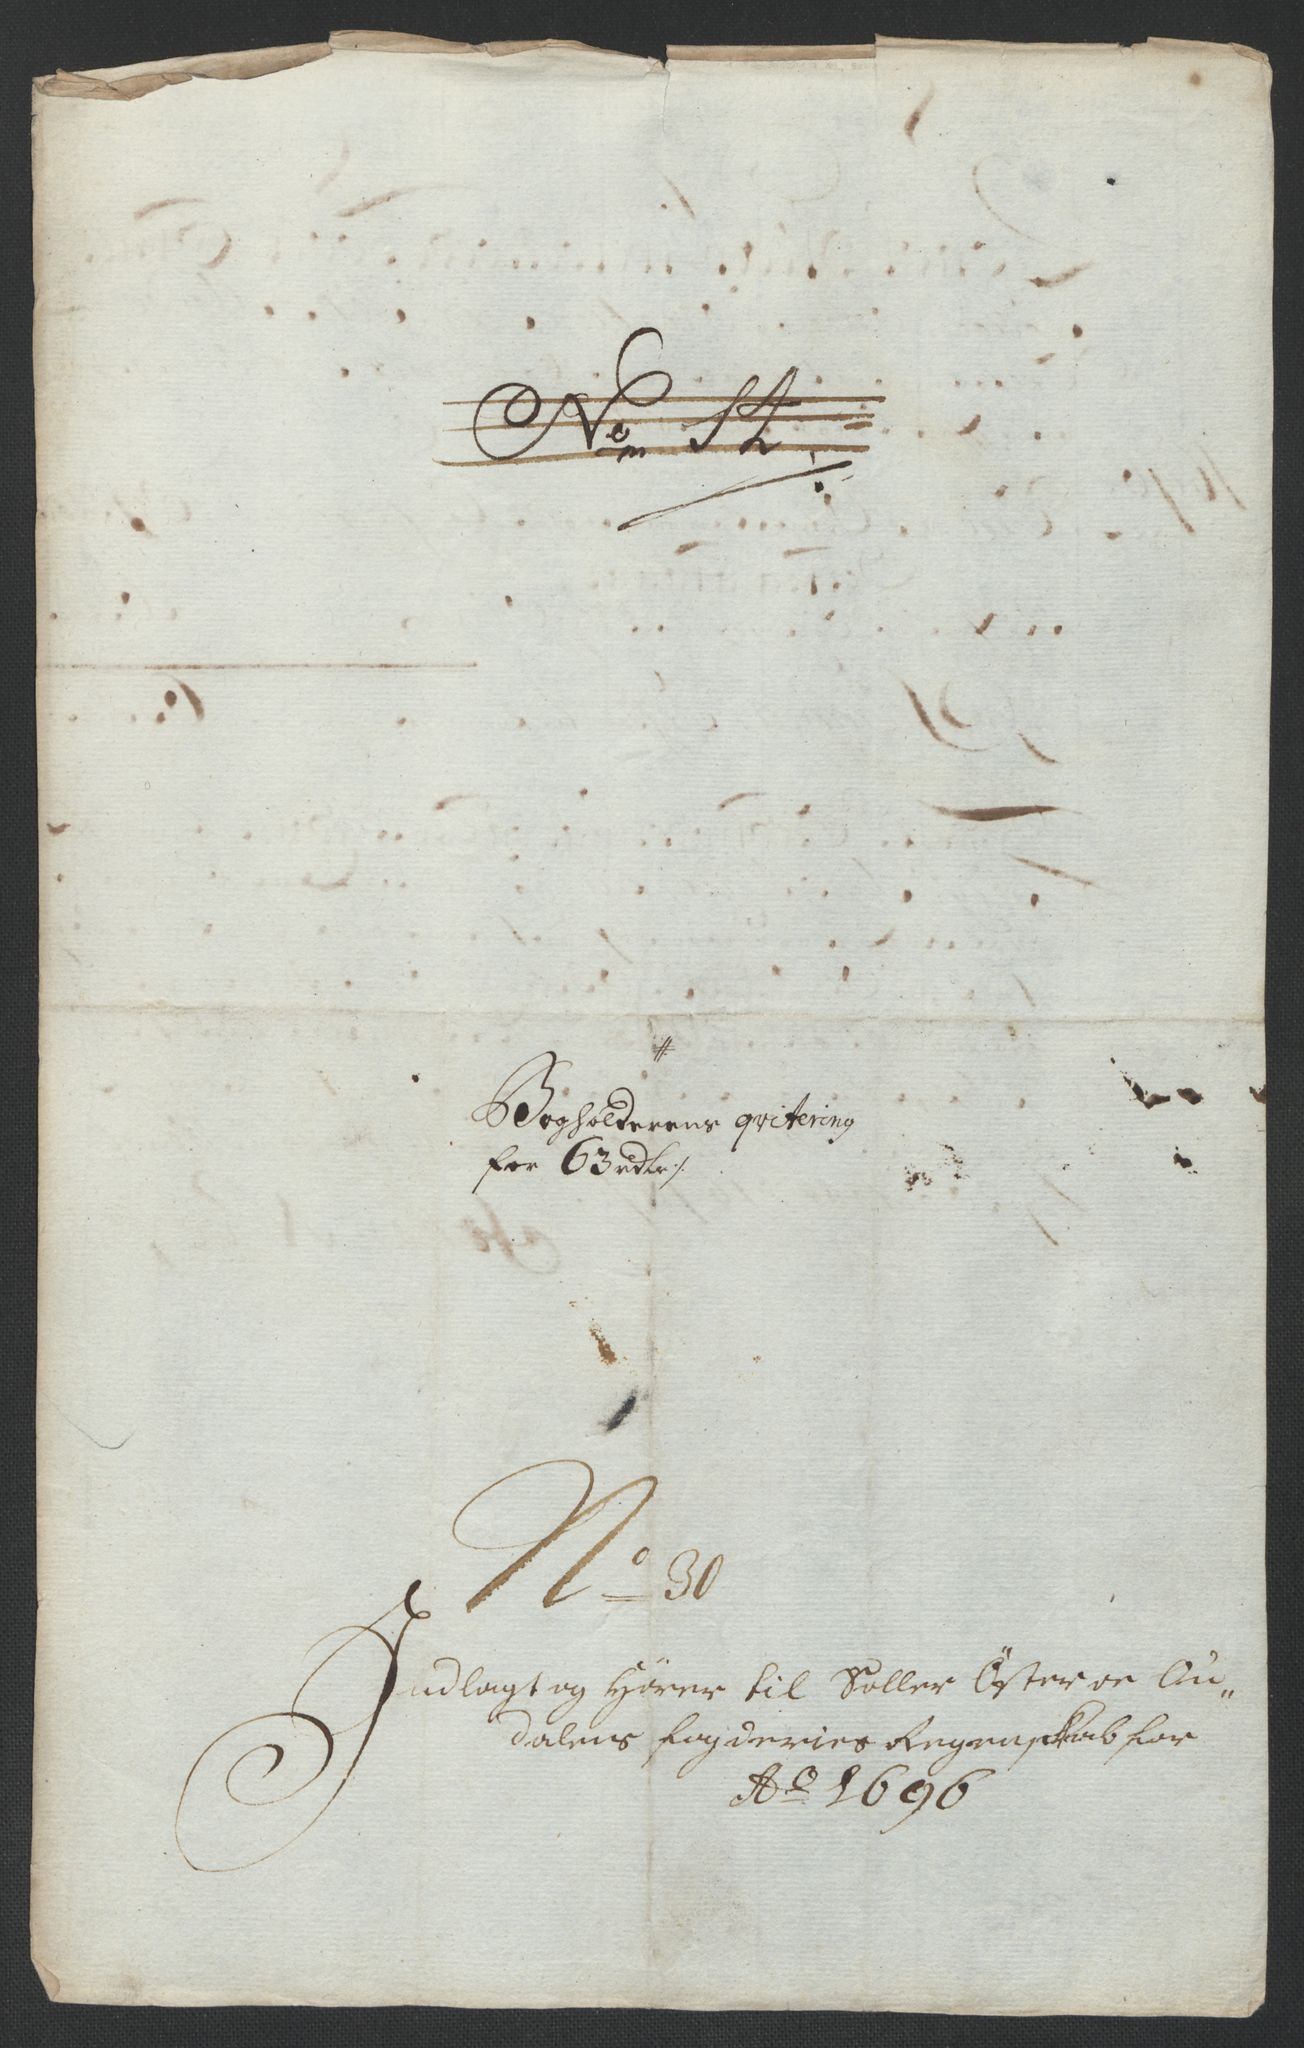 No 14
Bogholderens qvitering
for 63 rdlr
No 30
Indlagt og Hører til Soller Öster oc Au„
dalens fogderies Regenskab for
Ao 1696